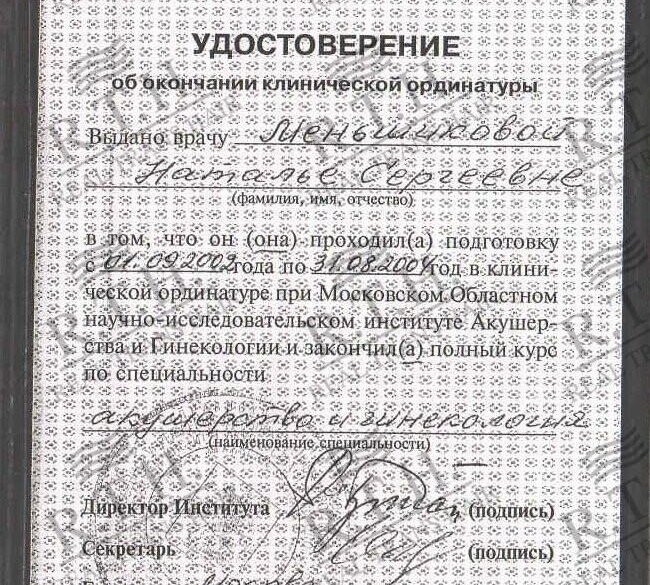 УДОСТОВЕРЕНИЕ
об окончании клинической ординатуры
Выдано врачу Меньшиковой
Наталье Сергеевне
(фамилия, имя, отчество)
в том, что он (она) проходил(а) подготовку
с 01.09.2002 года по 31.08.2004 год в клини-
ческой ординатуре при Московском Областном
научно-исследовательском институте Акушер-
ства и Гинекологии и закончил(а) полный курс
по специальности
акушерство и гинекология
(наименование специальности)
Директор Института (подпись)
Секретарь (подпись)